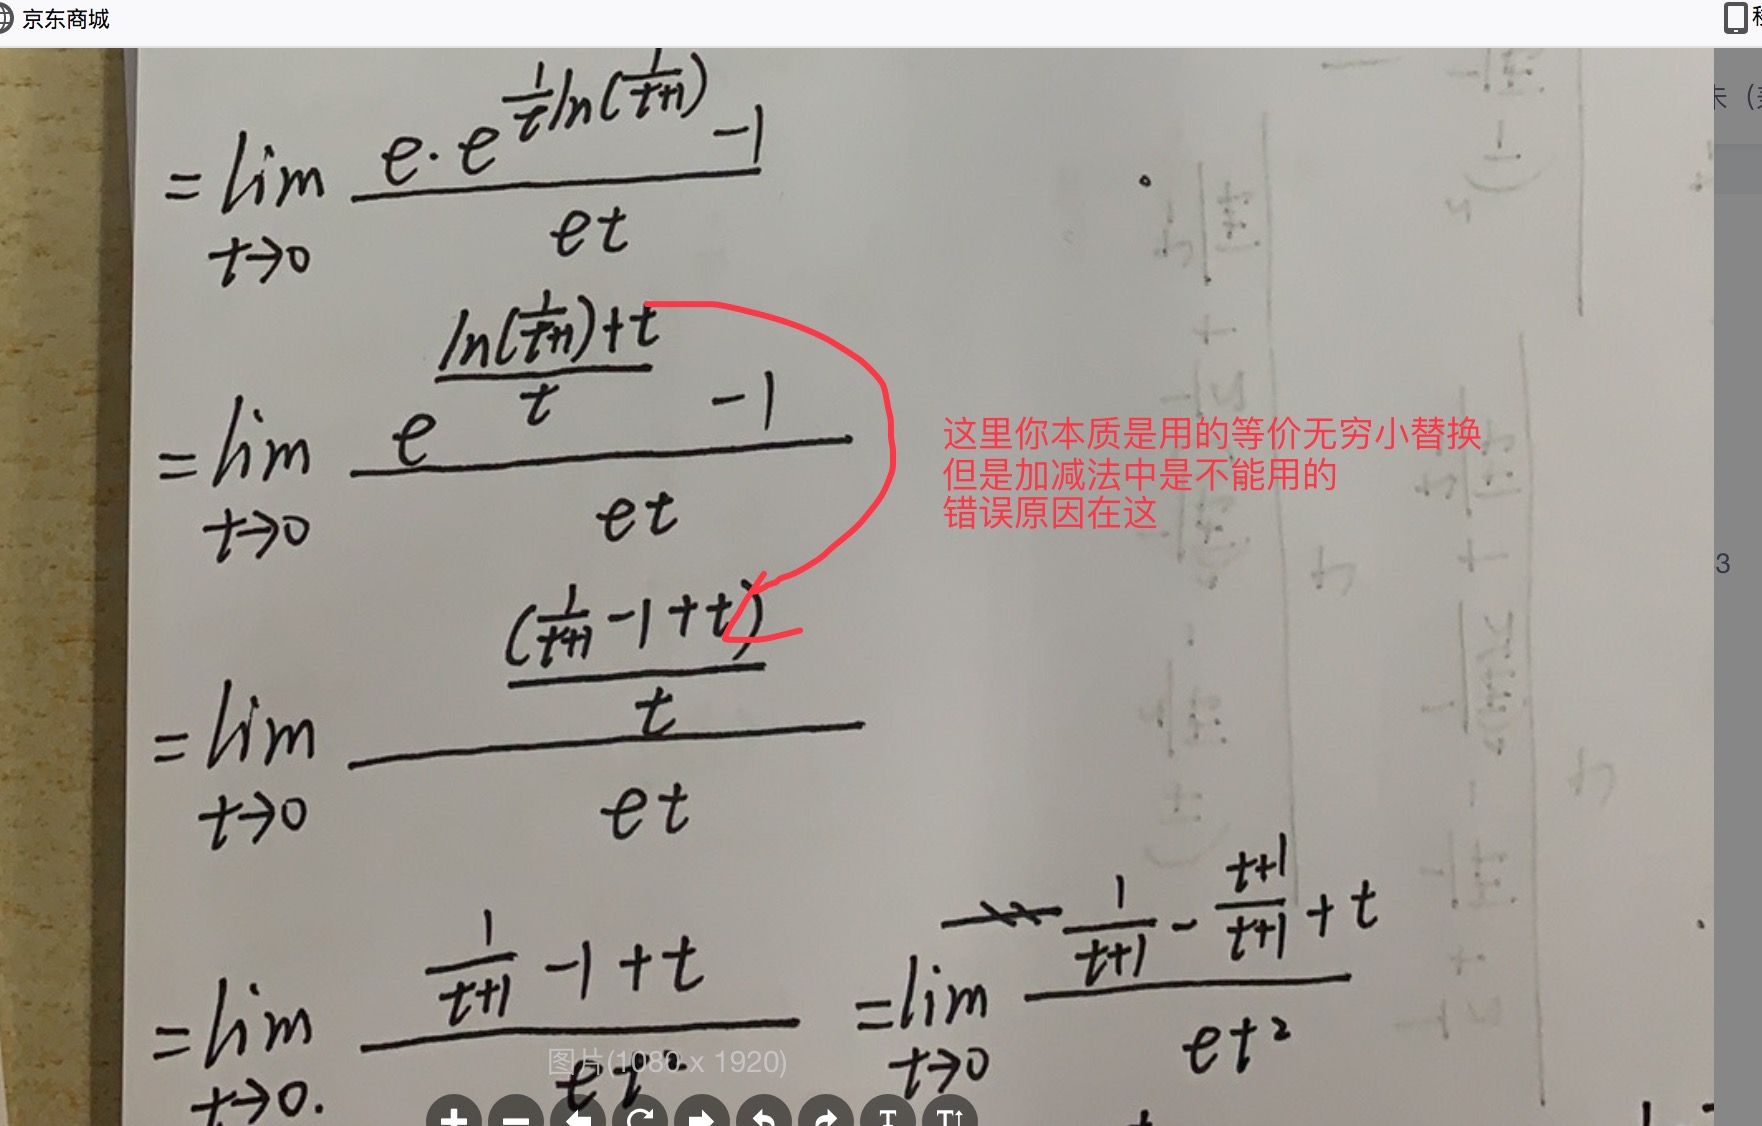 京东商城
= lim_{t→0} (e·e^{(1/t)ln(1/(t+1))} -1)/(et)
= lim_{t→0} (e^{(ln(1/(t+1))+t)/t} -1)/(et)
这里你本质是用的等价无穷小替换
但是加减法中是不能用的
错误原因在这
3
= lim_{t→0} ((1/(t+1) -1+t)/t)/(et)
= lim_{t→0.} (1/(t+1) -1+t)/(et²)
= lim_{t→0} (1/(t+1) - (t+1)/(t+1) + t)/(et²)
图片(1080 x 1920)